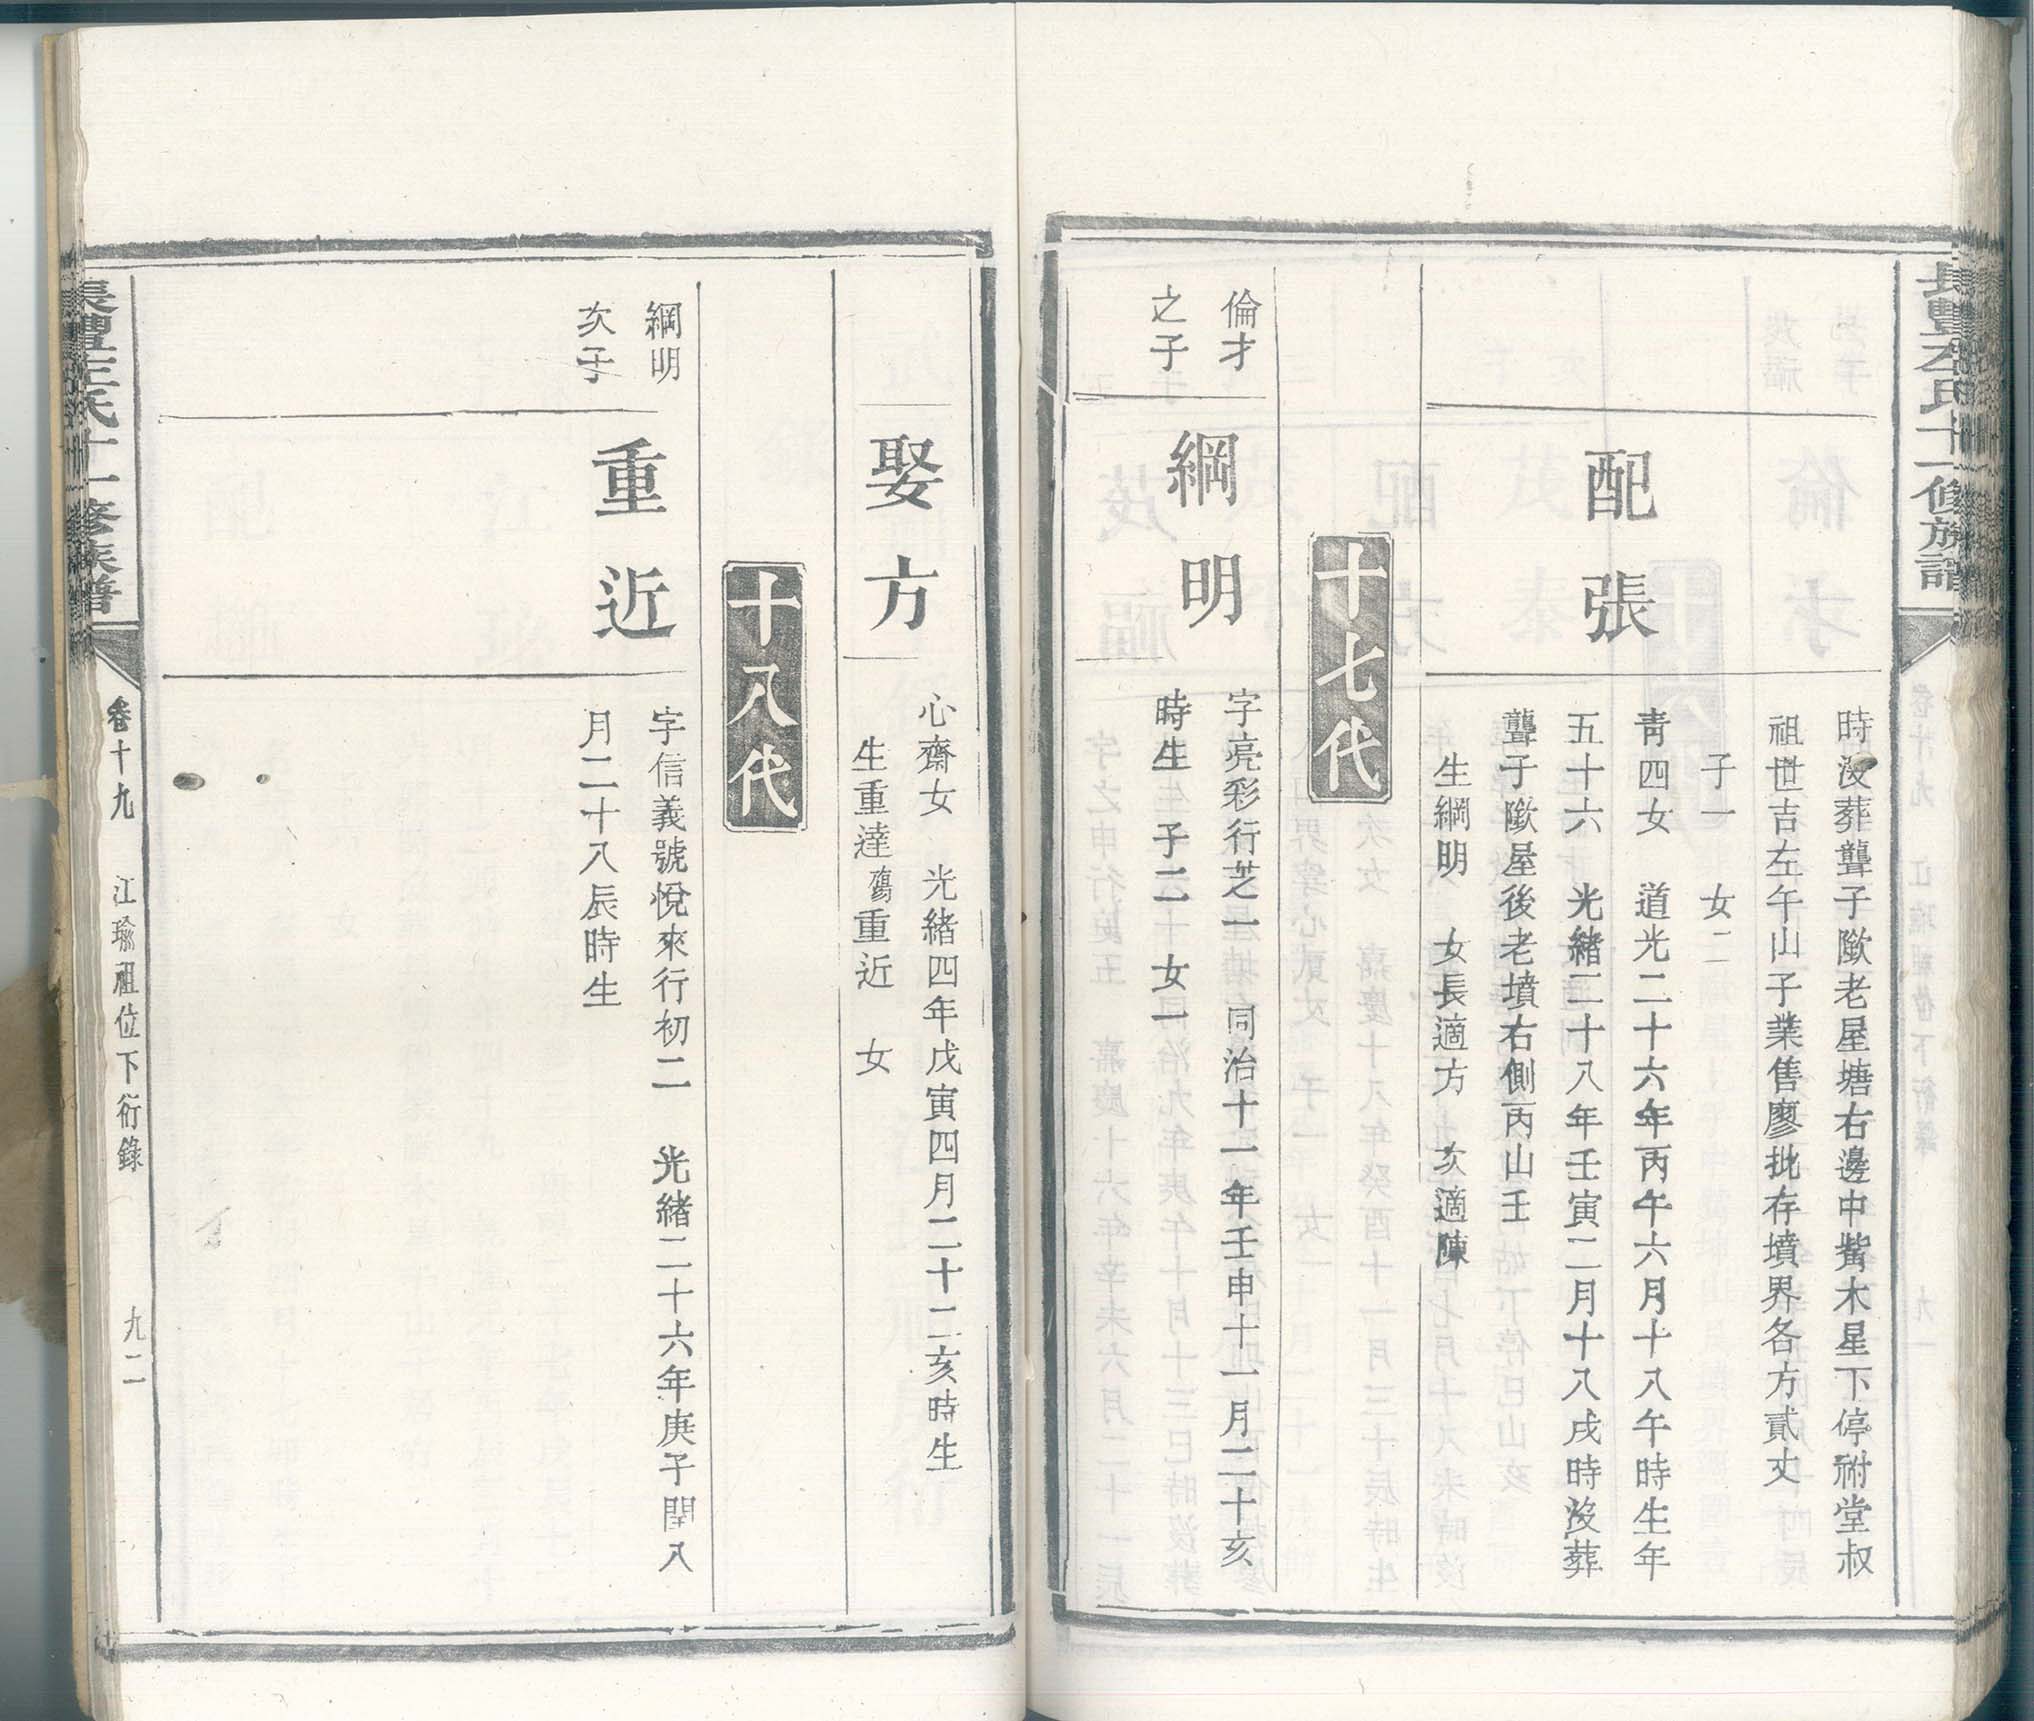 長豐左氏十一修族譜
時沒葬聾子歘老屋塘右邊中觜木星下停祔堂叔
祖世吉左午山子業售廖批存墳界各方貳丈
子一　女二
配張
青四女　道光二十六年丙午六月十八午時生年
五十六　光緒二十八年壬寅二月十八戌時沒葬
聾子歘屋後老墳右側丙山壬
生綱明　女長適方　次適陳
十七代
倫才
之子
綱明
字亮彩行芝一　同治十一年壬申十一月二十亥
時生　子二　女一
娶方
心齋女　光緒四年戊寅四月二十二亥時生
生重達殤重近　女
十八代
綱明
次子
重近
字信義號悅來行初二　光緒二十六年庚子閏八
月二十八辰時生
長豐左氏十一修族譜
卷十九　江瑜祖位下衍錄
九二